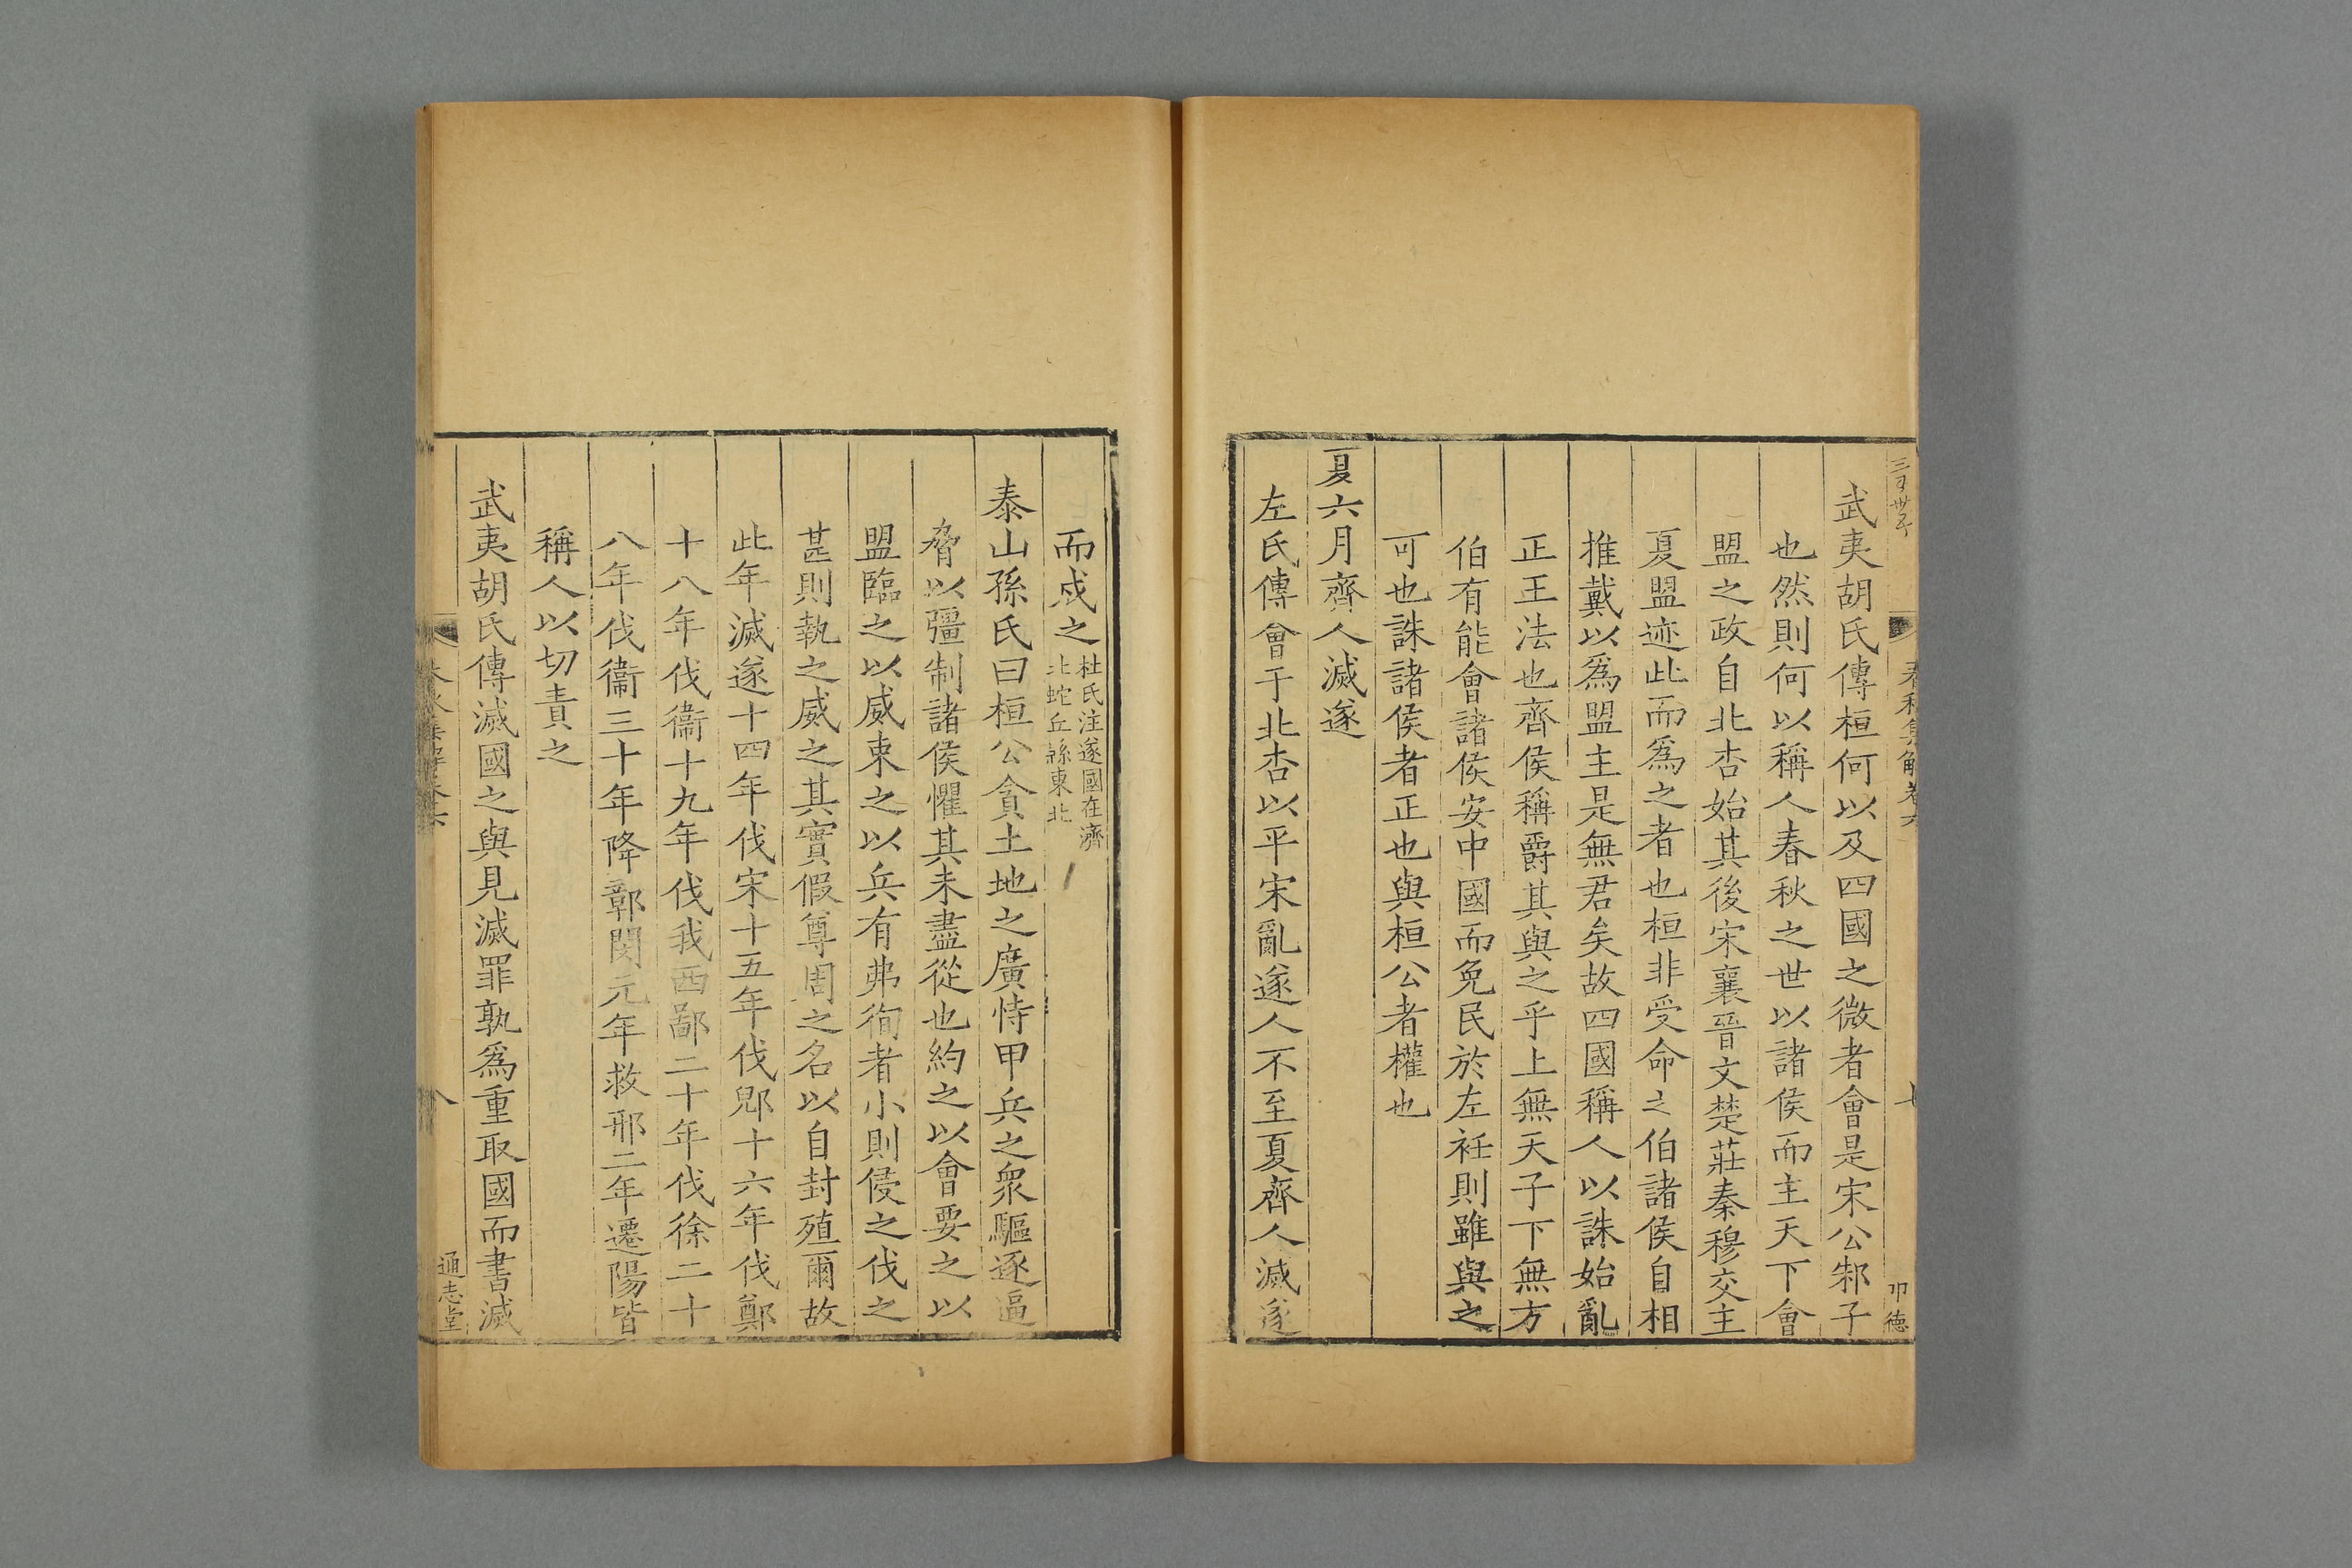 春秋集解卷六
武夷胡氏傳桓何以及四國之微者會是宋公邾子
也然則何以稱人春秋之世以諸侯而主天下會
盟之政自北杏始其後宋襄晉文楚莊秦穆交主
夏盟迹此而爲之者也桓非受命之伯諸侯自相
推戴以爲盟主是無君矣故四國稱人以誅始亂
正王法也齊侯稱爵其與之乎上無天子下無方
伯有能會諸侯安中國而免民於左衽則雖與之
可也誅諸侯者正也與桓公者權也
夏六月齊人滅遂
左氏傳會于北杏以平宋亂遂人不至夏齊人滅遂
而戍之杜氏注遂國在濟
北蛇丘縣東北
泰山孫氏曰桓公貪土地之廣恃甲兵之衆驅逐逼
脅以彊制諸侯懼其未盡從也約之以會要之以
盟臨之以威束之以兵有弗徇者小則侵之伐之
甚則執之威之其實假尊周之名以自封殖爾故
此年滅遂十四年伐宋十五年伐郳十六年伐鄭
十八年伐衞十九年伐我西鄙二十年伐徐二十
八年伐衞三十年降鄣閔元年救邢二年遷陽皆
稱人以切責之
武夷胡氏傳滅國之與見滅罪孰爲重取國而書滅
八
通志堂